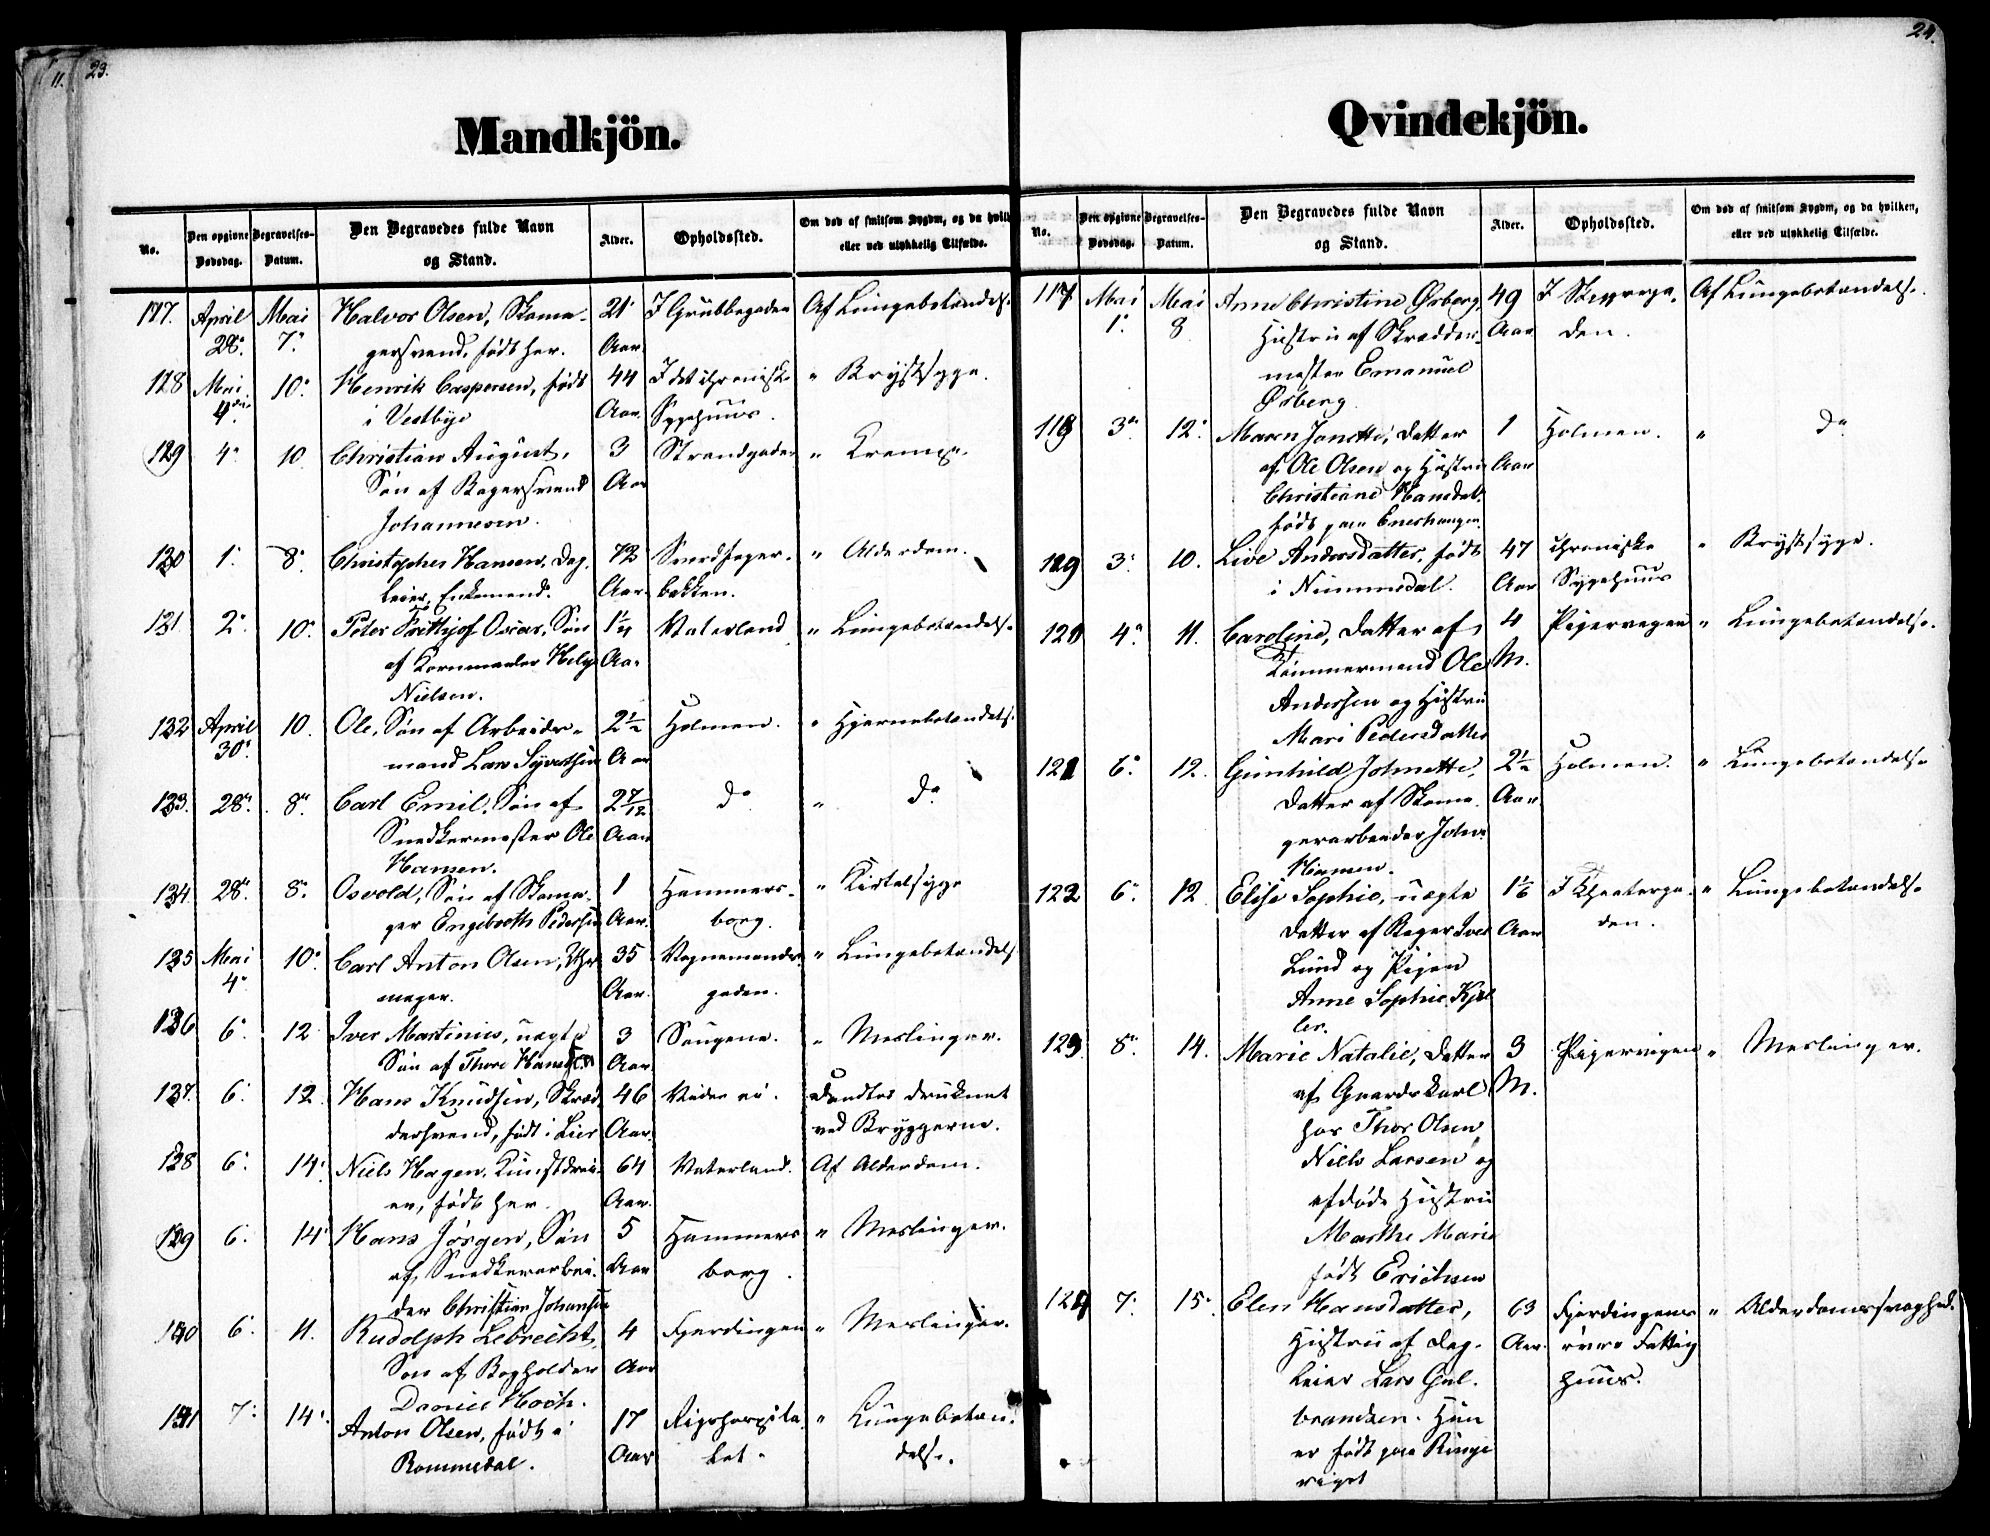 11. 23.
Mandkjön.
No.
Den opgivne Dødsdag.
Begravelses-Datum.
Den Begravedes fulde Navn og Stand.
Alder.
Opholdssted.
Om død af smitsom Sygdom, og da hvilken, eller ved ulykkelig Tilfælde.
127. April Mai Halvor Olsen, Skoma- 21 I Grubbegaden Af Lungebetændelse
28. 7. gersvend, født her. Aar
128 Mai 10. Henrik Caspersen, født 44 I det chroniske " Brystsyge.
4. i Vestbye Aar. Sygehuus.
129 4. 10 Christian August, 3 Strandgaden " Krampe.
Søn af Bagersvend Aar
Johannesen.
130 1. 8. Christopher Hansen, Dag- 72 Smedfager- " Alderdom.
leier, Enkemand. Aar. bakken.
131 2. 10. Peter Frithjof Oscar, Søn 1 1/4 Vaterland " Lungebetændelse
af Kornmaaler Helge Aar
Nielsen.
132 April 10. Ole, Søn af Arbeids- 2 1/2 Holmen. " Hjernebetændelse
30. mand Lars Syvertsen Aar
133. 28. 8. Carl Emil, Søn af 2 7/12 do " do
Snedkermester Ole Aar
Hansen.
134 28. 8. Osvold, Søn af Skoma- 1 Hammers- " Kirtelsyge
ger Engebreth Pedersen Aar. borg.
135 Mai 10. Carl Anton Olsen, Uhr- 35 Vognmands- " Lungebetændelse
4. mager. Aar. gaden.
136 6. 12 Iver Martinius, uægte 3 Saugene. " Meslinger.
Søn af Thore Hansen Aar
137. 6. 12 Hans Knudsen, Skræd- 46 dødfunden druknet
dersvend, født i Lier Aar. ved Bryggerne.
138 6. 14. Niels Hagen, Kunstdrei- 64 Vaterland. Af Alderdom.
er, født her. Aar.
139 6. 14 Hans Jørgen, Søn 5 Hammers " Meslinger.
af Snedkerarbei- Aar borg.
der Christian Johansen
140 6. 11. Rudolph Lebrecht, 4 Fjerdingen " Meslinger.
Søn af Bogholder Aar
Daniel Hoch.
141 7. 14. Anton Olsen, født i 17 Rigshospita- " Lungebetæn-
Rommedal. Aar let. delse.
24.
Qvindekjön.
No.
Den opgivne Dødsdag.
Begravelses-Datum.
Den Begravedes fulde Navn og Stand.
Alder.
Opholdssted.
Om død af smitsom Sygdom, og da hvilken, eller ved ulykkelig Tilfælde.
117 Mai Mai Anne Christine Ørberg, 49 I Skippergа- Af Lungebetændelse.
1. 8 Hustru af Skrædder- Aar den.
mester Emanuel
Ørberg.
118 3. 12. Maren Janette, Datter 1 Holmen. " do
af Ole Olsen og Hustru Aar
Christiane Hansdat.
født paa Eneshaugen.
119 3. 10. Live Andersdatter, født 47 chroniske " Brystsyge.
i Nummedal. Aar Sygehuus
120 4. 11. Caroline, Datter af 4 Pipervigen " Lungebetændelse.
Tømmermand Ole M.
Andersen og Hustru
Mari Pedersdatter
121 6. 12. Gunhild Johnette, 2 1/2 Holmen. " Lungebetændelse
Datter af Skoma- Aar.
gerarbeider Johan
Hansen.
122 6. 12. Elise Sophie, uægte 1 1/6 I Theaterga- " Lungebetændelse
Datter af Bager Iver Aar den.
Lund og Pigen
Anne Sophie Kjel-
ler.
123. 8. 14. Marie Natalie, Datter 3 Pipervigen " Meslinger.
af Gaardskarl M.
hos Thor Olsen,
Niels Larsen og
afdøde Hustru
Marthe Marie
født Erichsen
124 7. 15. Elen Hansdatter, 63 Fjerdingens " Alderdomssvaghed.
Hustru af Dag- Aar. øvre Fattig
leier Lars Gul- huus.
brandsen. Hun
er født paa Ringe
riget